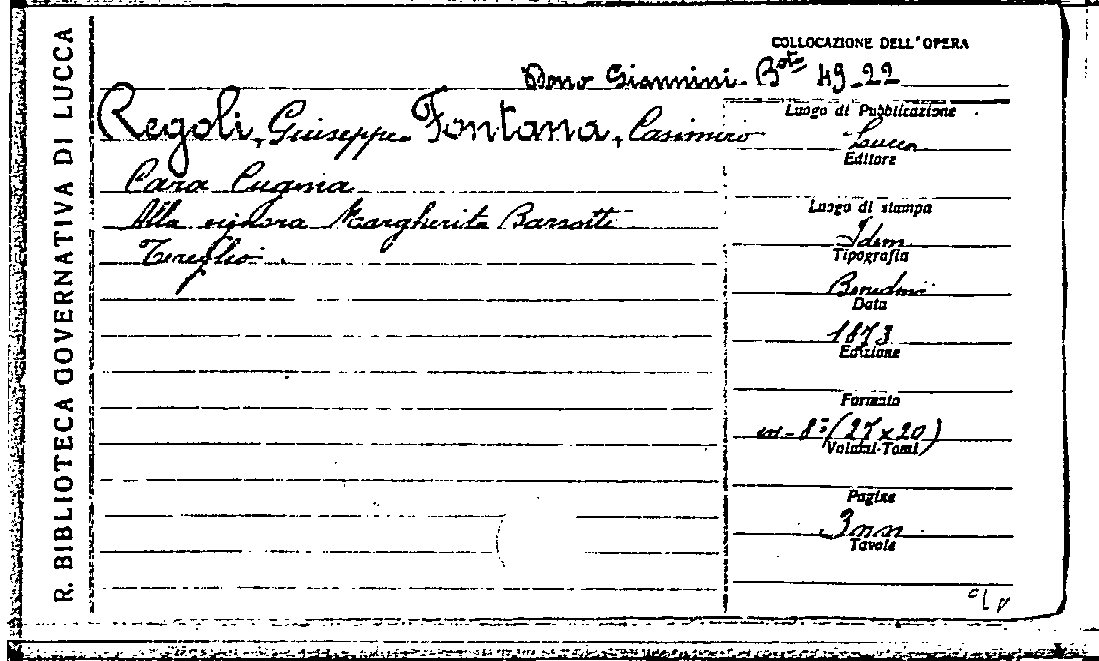 R. BIBLIOTECA GOVERNATIVA DI LUCCA
COLLOCAZIONE DELL'OPERA
Dono Giannini. Bta 49_22
Regoli, Giuseppe - Fontana, Casimiro
Cara Eugenia
Alla signora Margherita Barsotti
Tereglio.
Luogo di Pubblicazione
Lucca
Editore
Luogo di stampa
Idem
Tipografia
Benedini
Data
1873
Edizione
Formato
in-8° (27x20)
Volumi-Tomi
Pagine
3 nn
Tavole